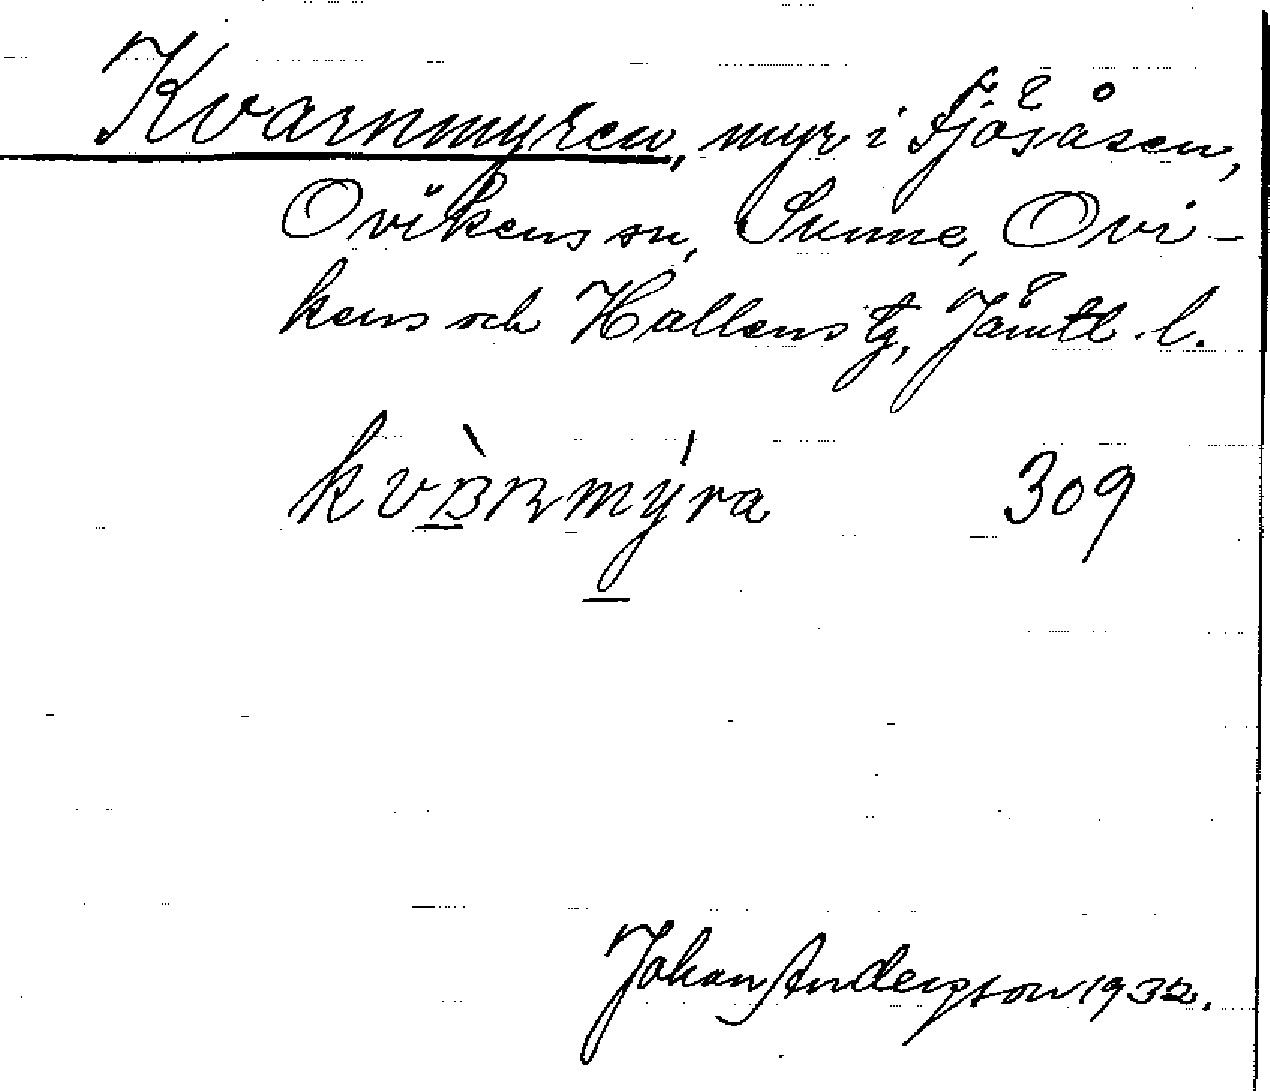 Kvarnmyren, myr i Sjösåsen,
Ovikens sn, Sunne, Ovi-
kens och Hallens tg, Jämtl. l.
309
Johan Anderson 1932.